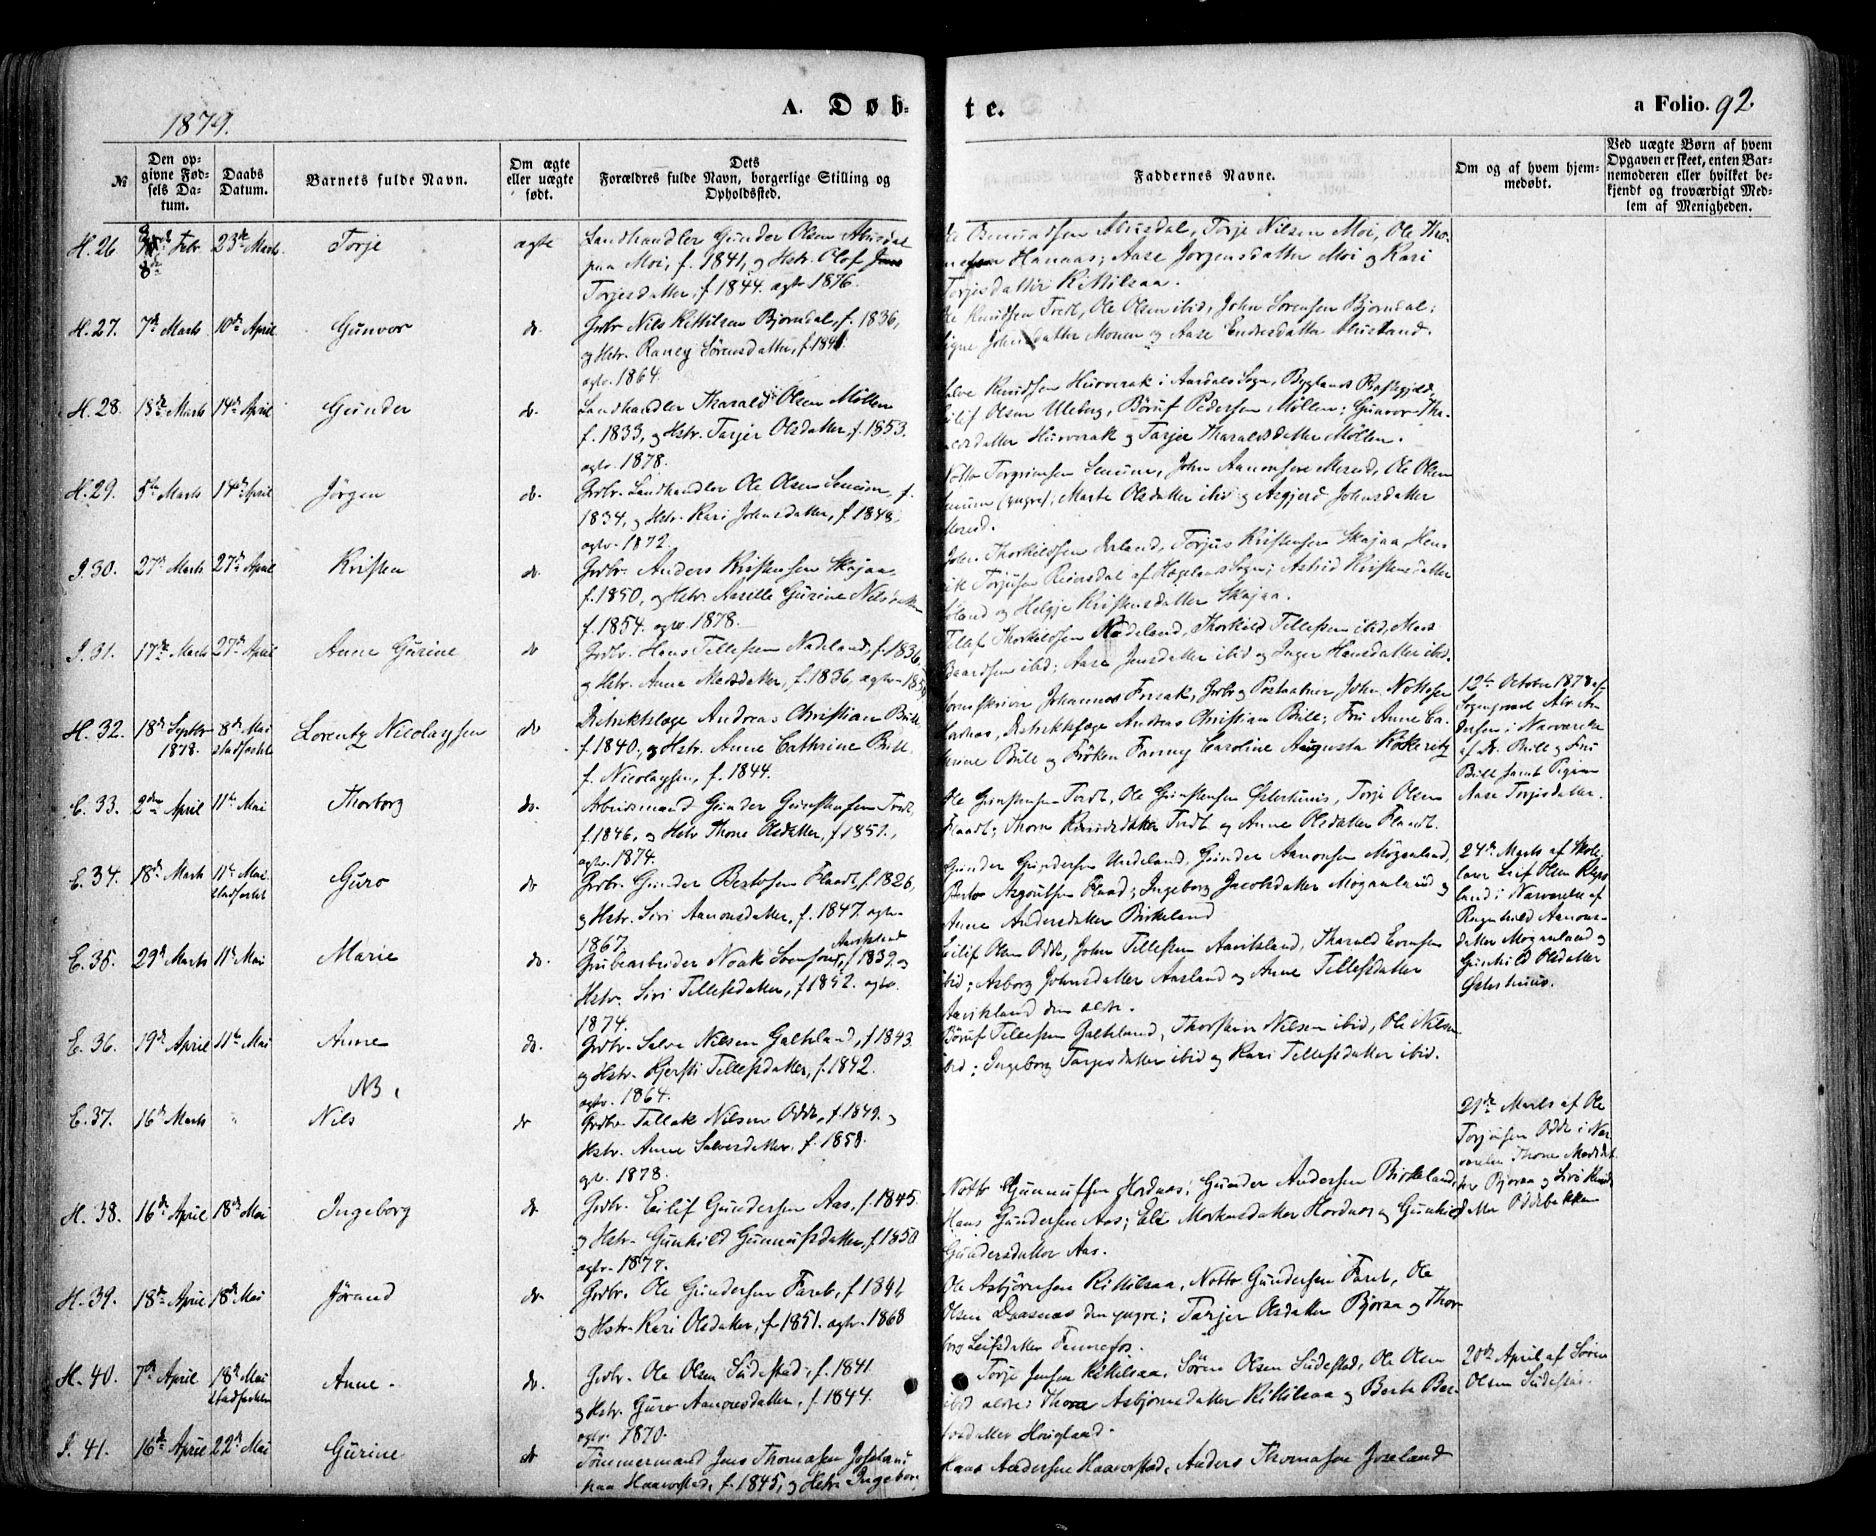 1879.
A. Døb-
te.
a Folio. 92.
№
Den op-
givne Fød-
sels Da-
tum.
Daabs
Datum.
Barnets fulde Navn.
Om ægte
eller uægte
født.
Dets
Forældres fulde Navn, borgerlige Stilling og
Opholdssted.
Faddernes Navne.
Om og af hvem hjem-
medøbt.
Ved uægte Børn af hvem
Opgaven er skeet, enten Bar-
nemoderen eller hvilket be-
kjendt og troværdigt Med-
lem af Menigheden.
H. 26 Febr 23de Marts Torje ægte
Landhandler Gunder Olsen Aasdal
paa Moi, f. 1841, og Hstr. Olof
Torjesdatter, f. 1844. agtv 1876.
Torje Nilsen Moi, Ole
Hanaas; Aase Jørgensdatter Moi og Kari
Torjesdatter Kittilsaa.
H. 27. 7de Marts 10de April Gunvor do.
Grdbr Nils Kittilsen Bjorndal, f. 1836,
og Hstr. Raney Sørensdatter, f. 1841.
agtv. 1864.
Knudsen Tredt, Ole Olsen ibid, John Sørensen Bjorndal;
Signe Johnsdatter Monen og Aase Endresdatter
H. 28. 18de Marts 14de April Gunder do.
Landhandler Tharald Olsen Möllen
f. 1833, og Hstr. Tarjer Olsdatter, f. 1853.
agtv. 1878.
Salve Knudsen Hurverak i Aardals Sogn, Byglands Præstegjeld,
Eilif Olsen Uleberg, Böruf Pedersen Möllen; Gunvor Tha-
raldsdatter Hurverak og Tarjer Tharaldsdatter Möllen.
H. 29. 5te Marts 14de April Jörgen do.
Grdbr. Landhandler Ole Olsen Senum, f.
1834, og Hstr. Kari Johnsdatter, f. 1848.
agtv. 1872.
Notto Torgrimsen Senum, John Aanonsen Mered, Ole Olsen
Senum (yngre); Marte Olsdatter ibid og Asgjerd Johnsdatter
Mered.
I. 30. 27de Marts 27de April Kristen do.
Grdbr. Anders Kristensen Skajaa,
f. 1850, og Hstr. Aasille Gurine Nilsdatter
f. 1854. agtv. 1878.
John Thorkildsen Torjus Kristensen Skajaa, Hen-
rik Torjusen Reiersdal af Hægelands Sogn; Astrid Kristensdatter
og Helgje Kristensdatter Skajaa.
I. 31. 17de Marts 27de April Anne Gurine do
Grdbr. Hans Tellefsen Nadeland, f. 1836,
og Hstr. Anne Madsdatter, f. 1836, agtv.
Tellef Thorkildsen Nadeland, Thorkild Tellefsen ibid, Mads
Baardsen ibid; Aase Jensdatter ibid og Inger Hansdatter ibid.
H. 32. 18de Septbr 1878. 8de Mai stadfæstet Lorentz Nicolaysen do
Distriktslæge Andreas Christian Bull,
f. 1840, og Hstr. Anne Cathrine Bull
f. Nicolaysen, f. 1844.
Johannes Grdbr og Postaabner John Nottosen
Distriktslæge Andreas Christian Bull; Fru Anne Ca-
thrine Bull og Fröken Fanny Caroline Augusta
12te October 1878 af
Bull og Fru
Bull samt Pigen
Aase Torjesdatter.
E. 33. 2den April 11te Mai Thorborg do.
Arbeidsmand Gunder Gunstensen Tredt,
f. 1846, og Hstr Thone Olsdatter, f. 1851.,
agtv. 1874.
Ole Gunstensen Tredt, Ole Gunstensen Osterhuus, Torje Olsen
Flaadt; Thone Tredt og Anne Olsdatter Flaadt.
E. 34. 18de Marts 11te Mai stadfæstet Guro do
Grdbr. Gunder Bertofsen Flaadt, f. 1826,
og Hstr. Siri Aanonsdatter, f. 1847. agtv.
1867.
Gunder Gundersen Undeland, Gunder Aanonsen Mögaaland,
Flaad; Ingeborg Jacobsdatter Mögaaland og
Anne Andersdatter Birkeland
24de Marts af Skole-
lærer Leif Olsen
i Nærværelse af
Ragnhild Aanons-
datter Mögaaland og
Gunhild Olsdatter
Osterhuus.
E. 35. 29de Marts 11te Mai Marie do.
Grubearbeider Noak Svensen Aavitsland, f. 1839. og
Hstr. Siri Tellefsdatter, f. 1852. agtv.
1874.
Eilif Olsen Odde, John Tellefsen Aavitsland, Tharald Evensen
ibid; Asborg Johnsdatter Aasland og Anne Tellefsdatter
Aavitsland den ældre.
E. 36. 19de April 11te Mai Anne do.
Grdbr. Salve Nilsen Galteland, f. 1843.
og Hstr. Kjersti Tellefsdatter, f. 1842.
agtv. 1864.
Böruf Tellefsen Galteland, Thorstein Nilsen ibid, Ole Nilsen
ibid; Ingeborg Tarjesdatter ibid og Kari Tellefsdatter ibid.
NB.
E. 37. 16de Marts " Nils do
Grdbr. Tallak Nilsen Odde, f. 1849. og
Hstr. Anne Salvesdatter, f. 1858.
agtv. 1878.
21de Marts af Ole
Torjusen Odde i Nær-
værelse Thone Madsdat-
ter Bjoraa og Siri Knuds-
datter Oddebakken
H. 38. 16de April 18de Mai Ingeborg do
Grdbr. Eilif Gundersen Aas, f. 1845.
og Hstr. Gunhild Gunnufsdatter, f. 1850
agtv. 1877.
Notto Gunnufsen Hordnes; Gunder Andersen Birkeland
Hans Gundersen Aas; Eli Morkusdatter Hordnes og Gunhild
Gundersdatter Aas.
H. 39. 18de April 18de Mai Jørand do
Grdbr. Ole Gundersen Faret, f. 1842
og Hstr. Kari Olsdatter, f. 1851. agtv. 1868
Ole Asbjörnsen Kittilsaa, Notto Gundersen Faret, Ole
Olsen Daasnes den yngre; Tarjer Olsdatter Bjoraa og Thor-
borg Leifsdatter Fennefos.
H. 40. 7de April 18de Mai stadfæstet Anne. do.
Grdbr. Ole Olsen Sudestad, f. 1841.
og Hstr. Guro Aanonsdatter, f. 1844.
agtv. 1870.
Torje Jensen Kittilsaa, Sören Olsen Sudestad, Ole Olsen
ibid ældre; Thora Asbjörnsdatter Kittilsaa og Berte
datter Hougland.
20de April af Sören
Olsen Sudestad.
I. 41. 16de April 22de Mai Gurine do
Tömmermand Jens Thomasen Joseland
paa Haavorstad, f. 1845, og Hstr Ingeborg
Hans Andersen Haavorstad, Anders Thomasen Joseland